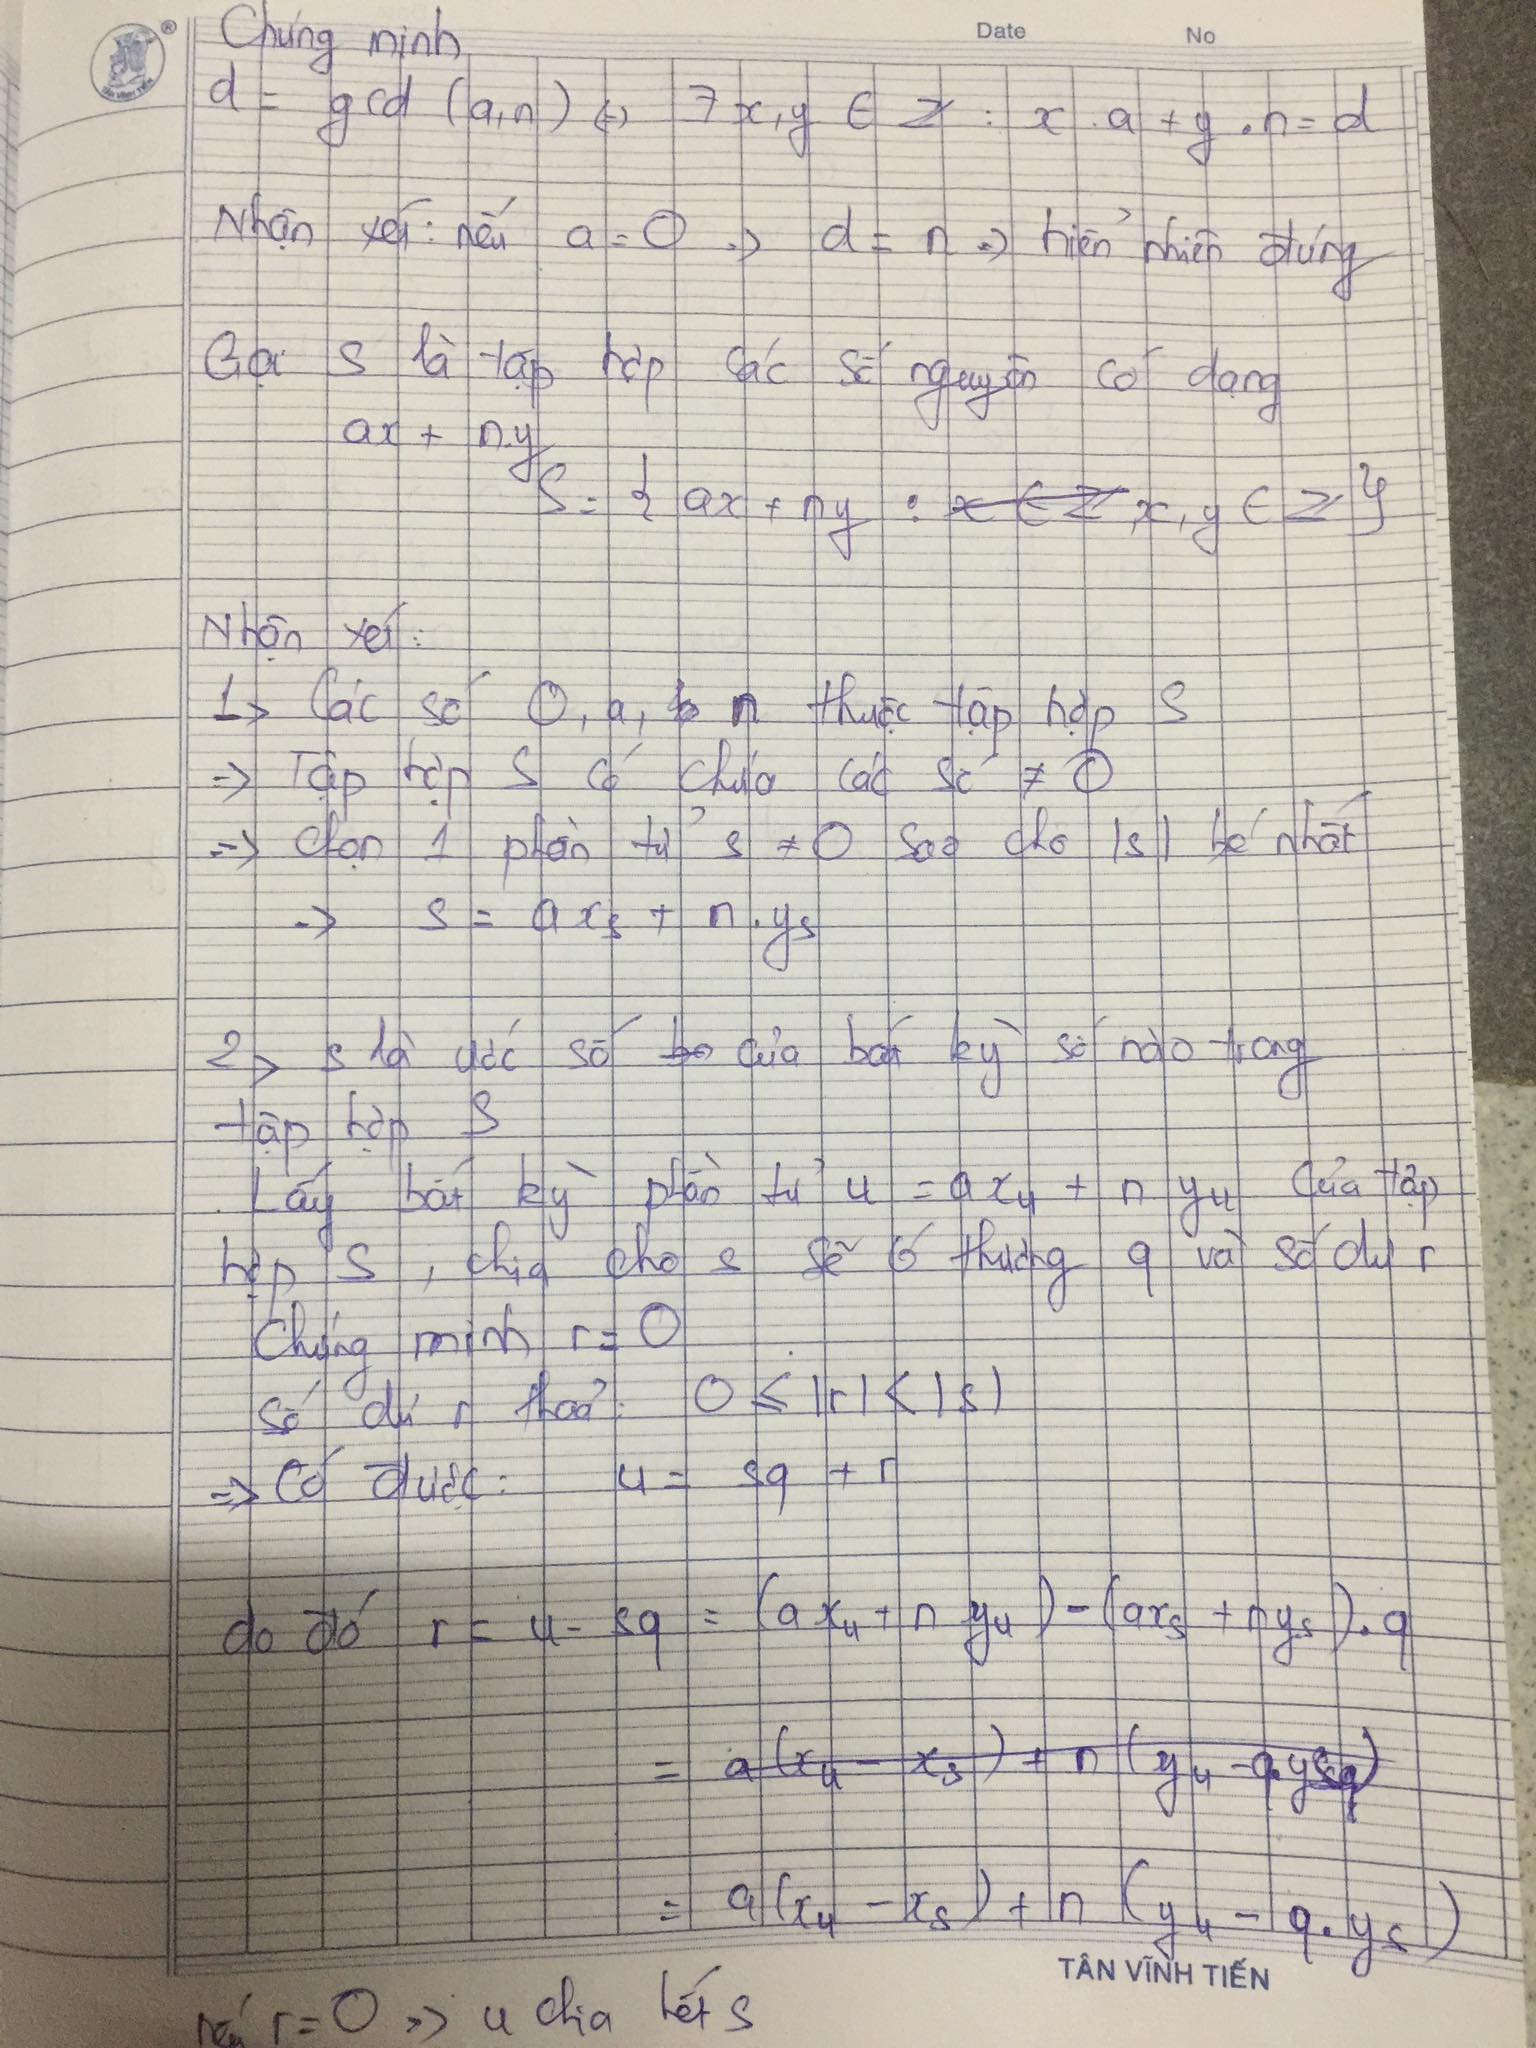 Date No
TÂN VĨNH TIẾN
Chứng minh
d = gcd (a,n) ⇔ ∃ x,y ∈ Z : x . a + y . n = d
Nhận xét: nếu a = 0 => d = n => hiển nhiên đúng
Gọi S là tập hợp các số nguyên có dạng
ax + n.y
S = { ax + ny : x ∈ Z x, y ∈ Z }
Nhận xét:
1> Các số 0, a, b n thuộc tập hợp S
=> Tập hợp S có chứa các số ≠ 0
=> chọn 1 phần tử s ≠ 0 sao cho |s| bé nhất
=> s = axₛ + n.yₛ
2> s là ước số của bất kỳ số nào trong
tập hợp S
Lấy bất kỳ phần tử u = a xᵤ + n yᵤ của tập
hợp S, chia cho s sẽ có thương q và số dư r
Chứng minh r = 0
số dư r thoả: 0 ≤ |r| < |s|
=> Có được: u = sq + r
do đó r = u - sq = (a xᵤ + n yᵤ) - (axₛ + nyₛ).q
= a(xᵤ - xₛ) + n (yᵤ - q.yₛ)
= a(xᵤ - xₛ) + n (yᵤ - q.yₛ)
TÂN VĨNH TIẾN
nếu r = 0 => u chia hết s